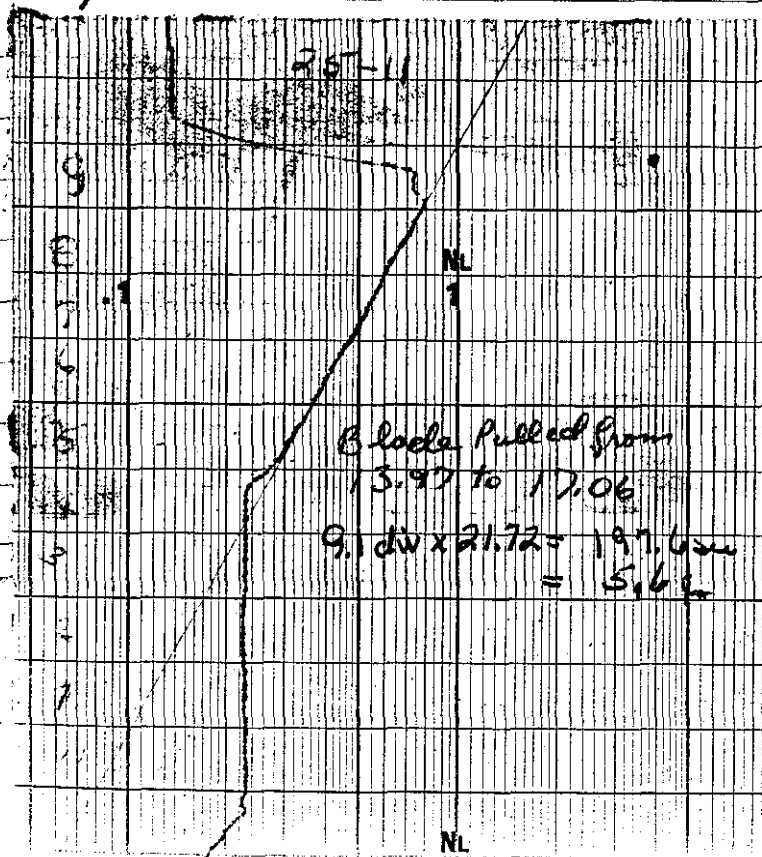 25-11
9
NL
.1
1
6
5
4
3
1
Blade Pulled from
13.97 to 17.06
9.1 div x 21.72 = 197.6 sec
= 5.6
NL